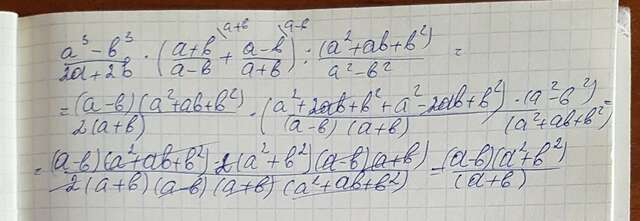 a+b a-b
(a³-b³)/(2a+2b) · ((a+b)/(a-b) + (a-b)/(a+b)) : (a²+ab+b²)/(a²-b²) =
= (a-b)(a²+ab+b²)/2(a+b) · (a²+2ab+b²+a²-2ab+b²)/(a-b)(a+b) · (a²-b²)/(a²+ab+b²) =
= (a-b)(a²+ab+b²) 2(a²+b²)(a-b)(a+b)/2(a+b)(a-b)(a+b)(a²+ab+b²) = (a-b)(a²+b²)/(a+b)